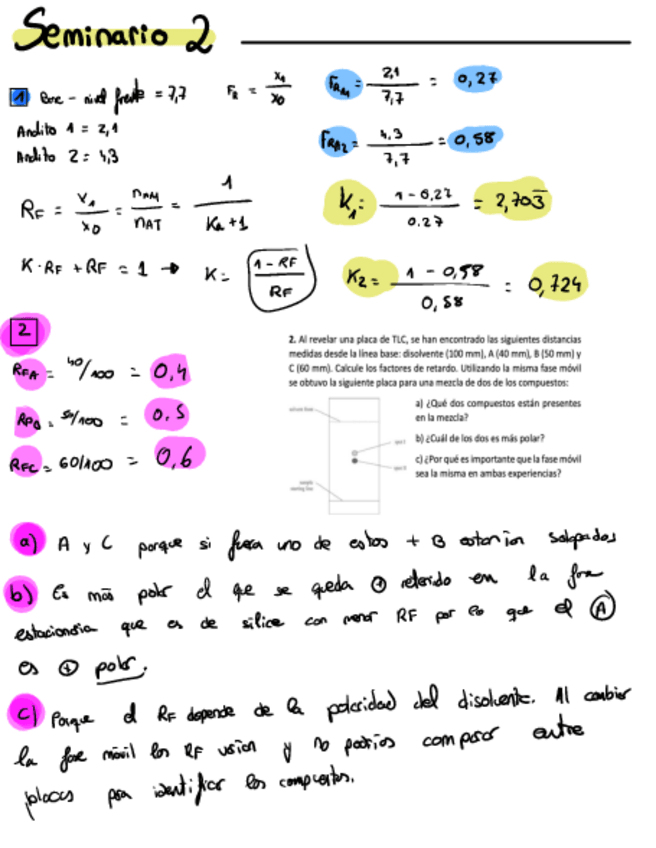 Seminario 2
1 Base - nivel frente = 7,7
Andito 1 = 2,1
Andito 2 = 4,3
FR = x1 / x0
FRA1 = 2,1 / 7,7 = 0,27
FRA2 = 4,3 / 7,7 = 0,58
RF = x1 / x0 = nAM / nAT = 1 / Ka + 1
K · RF + RF = 1 → K = 1 - RF / RF
K1 = 1 - 0,27 / 0.27 = 2,703
K2 = 1 - 0,58 / 0,58 = 0,724
2
RFA = 40/100 = 0,4
= 50/100 = 0.5
RFC = 60/100 = 0,6
2. Al revelar una placa de TLC, se han encontrado las siguientes distancias
medidas desde la línea base: disolvente (100 mm), A (40 mm), B (50 mm) y
C (60 mm). Calcule los factores de retardo. Utilizando la misma fase móvil
se obtuvo la siguiente placa para una mezcla de dos de los compuestos:
a) ¿Qué dos compuestos están presentes
en la mezcla?
b) ¿Cuál de los dos es más polar?
c) ¿Por qué es importante que la fase móvil
sea la misma en ambas experiencias?
a) A y C porque si fuera uno de estos + B estarían solapados
b) Es más polar el que se queda + retenido en la fase
estacionaria que es de sílice con menor RF por lo que el A
es + polar.
c) Porque el RF depende de la polaridad del disolvente. Al cambiar
la fase móvil los RF y no podrías comparar entre
placas para identificar los compuestos.